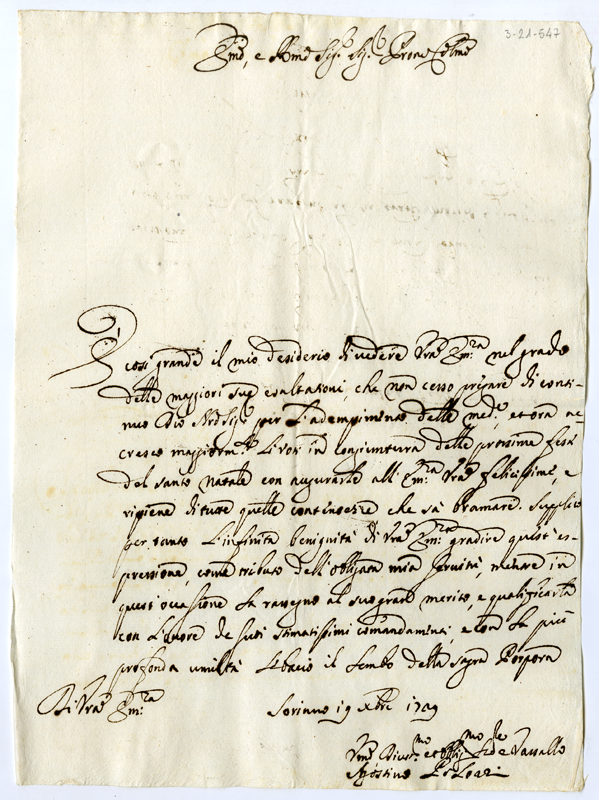 3-21-547
Em.o, e R.mo Sig.r Sig.r Prone Colmo
È così grande il mio desiderio di vedere Vra Em.za nel grado
delle maggiori sue esaltationi, che non cesso pregare di conti-
nuo Dio N.ro Sig.re per l'adempimento delle med.e, et ora ac-
cresco maggiorm.te li voti in congiuntura delle prossime feste
del santo Natale con augurarle all'Em.za Vra felicissime, e
ripiene di tutte quelle contentezze che sà bramare. Supplico
per tanto l'infinita benignità di Vra Em.za gradire quest'es-
pressione, come tributo dell'obligata mia servitù, mentre in
quest'occasione la rassegno al suo gran merito, e qualificarla
con l'honore de suoi stimatissimi comandamenti, e con la più
profonda umiltà le bacio il lembo della sagra Porpora
Di Vra Em.za
Soriano 19 Xbre 1709
Vmo Divot.mo et Obblig.mo Se.re e Vassallo
Agostino